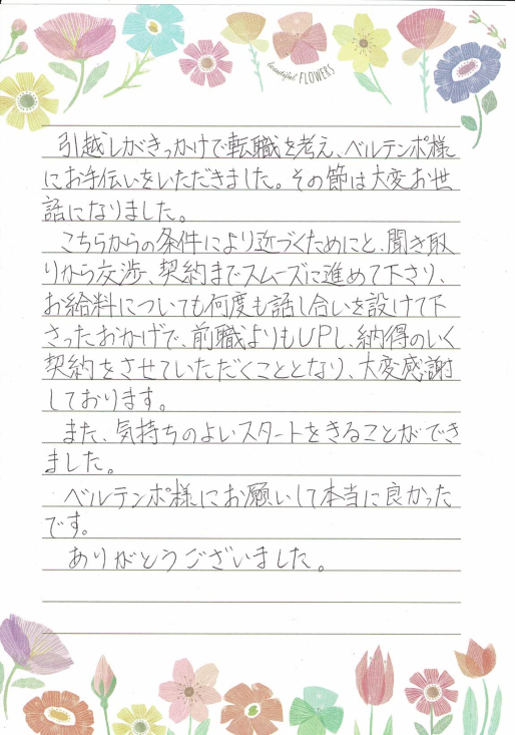 beautiful FLOWERS
引越しがきっかけで転職を考え、ベルテンポ様
にお手伝いをいただきました。その節は大変お世
話になりました。
こちらからの条件により近づくためにと、聞き取
りから交渉、契約までスムーズに進めて下さり、
お給料についても何度も話し合いを設けて下
さったおかげで、前職よりもUPし、納得のいく
契約をさせていただくこととなり、大変感謝
しております。
また、気持ちのよいスタートをきることができ
ました。
ベルテンポ様にお願いして本当に良かった
です。
ありがとうございました。